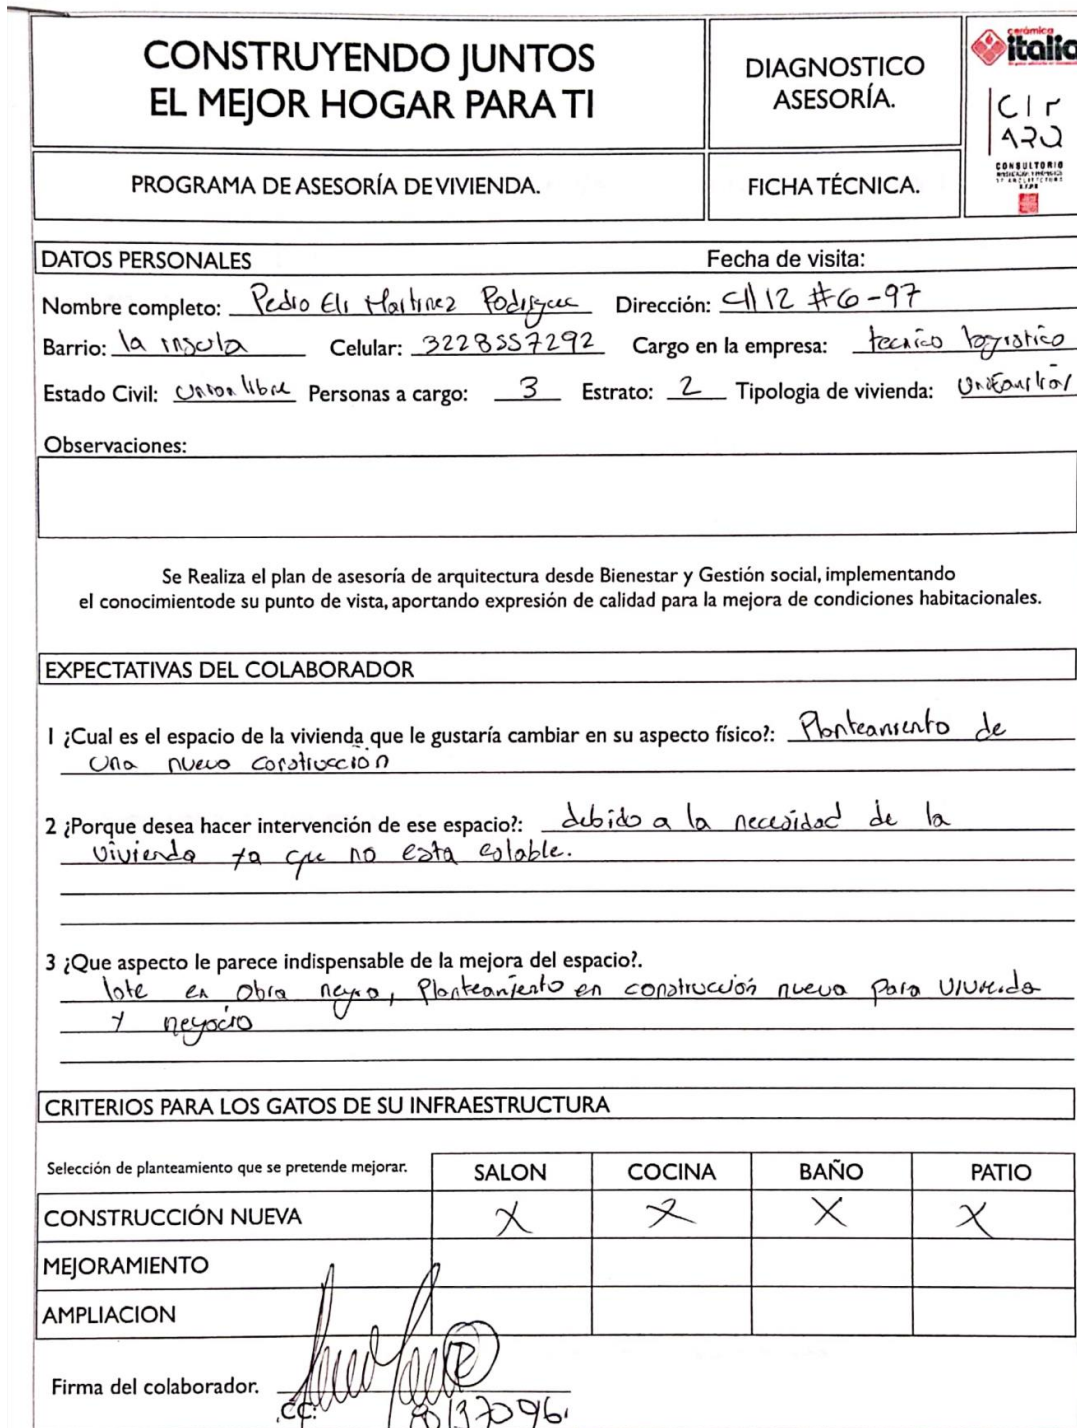 CONSTRUYENDO JUNTOS
EL MEJOR HOGAR PARA TI
DIAGNOSTICO
ASESORÍA.
cerámica
italia
CIP
ARQ
CONSULTORIO
PROGRAMA DE ASESORÍA DE VIVIENDA.
FICHA TÉCNICA.
DATOS PERSONALES Fecha de visita:
Nombre completo: Pedro Eli Martinez Rodriguez Dirección: Cll 12 #6-97
Barrio: la insula Celular: 3228557292 Cargo en la empresa: tecnico logistico
Estado Civil: Union libre Personas a cargo: 3 Estrato: 2 Tipologia de vivienda: Unifamiliar
Observaciones:
Se Realiza el plan de asesoría de arquitectura desde Bienestar y Gestión social, implementando
el conocimientode su punto de vista, aportando expresión de calidad para la mejora de condiciones habitacionales.
EXPECTATIVAS DEL COLABORADOR
1 ¿Cual es el espacio de la vivienda que le gustaría cambiar en su aspecto físico?: Planteamiento de
una nueva construcción
2 ¿Porque desea hacer intervención de ese espacio?: debido a la necesidad de la
vivienda ya que no esta estable.
3 ¿Que aspecto le parece indispensable de la mejora del espacio?.
lote en Obra negra, Planteamiento en construcción nueva para vivienda
y negocio
CRITERIOS PARA LOS GATOS DE SU INFRAESTRUCTURA
Selección de planteamiento que se pretende mejorar. SALON COCINA BAÑO PATIO
CONSTRUCCIÓN NUEVA X X X X
MEJORAMIENTO
AMPLIACION
Firma del colaborador.
CC: